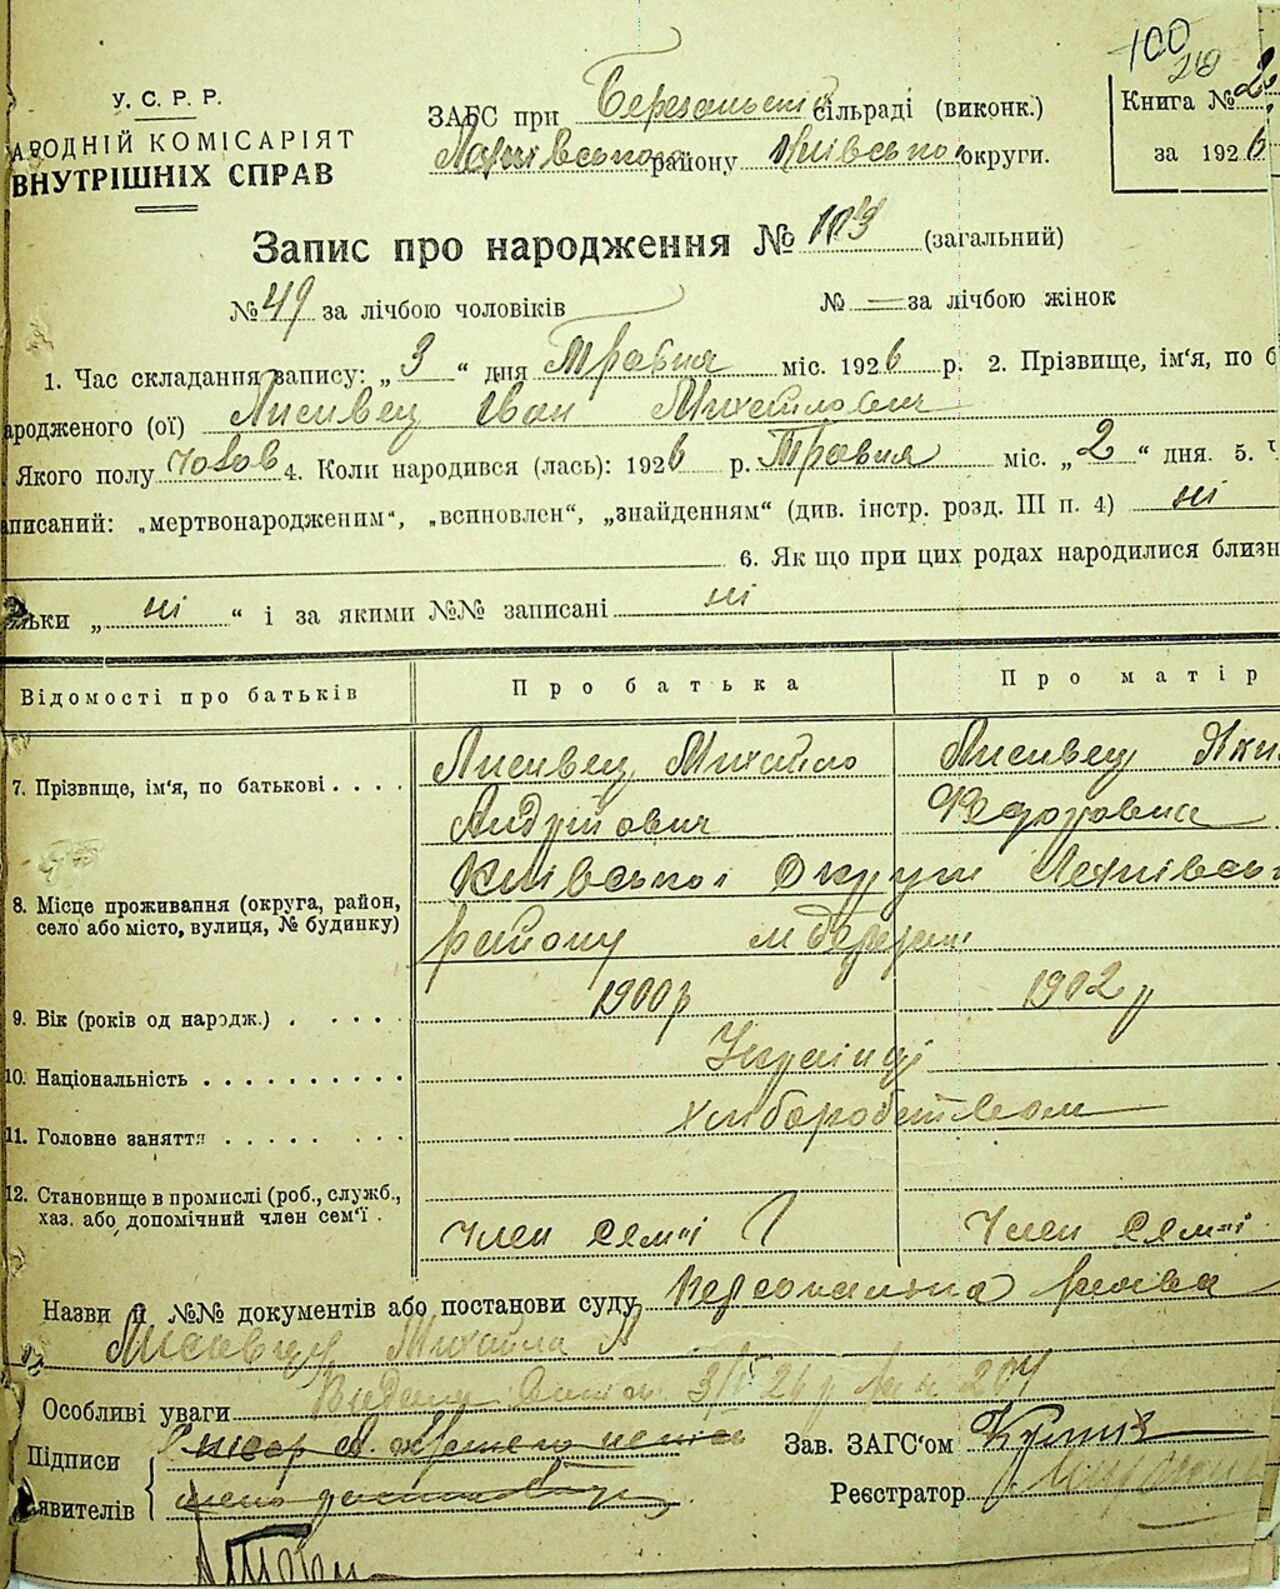 100
У. С. Р. Р.
АРОДНІЙ КОМІСАРІЯТ
ВНУТРІШНІХ СПРАВ
ЗАГС при Березанській сільраді (виконк.)
району Київської округи.
Книга № 2
за 1926
Запис про народження № 103 (загальний)
№ 49 за лічбою чоловіків № — за лічбою жінок
1. Час складання запису: „ 3 “ дня Травня міс. 1926 р. 2. Прізвище, ім'я, по б
ародженого (ої) Лисивец Іван Михайлович
Якого полу чолов 4. Коли народився (лась): 1926 р. Травня міс. „ 2 “ дня. 5. Ч
аписаний: „мертвонародженим“, „всиновлен“, „знайденням“ (див. інстр. розд. III п. 4) ні
6. Як що при цих родах народилися близн
льки „ ні “ і за якими №№ записані ні
Відомості про батьків Про батька Про матір
7. Прізвище, ім'я, по батькові . . . . Лисивец Михайло Андрійович Лисивец Федоровна
8. Місце проживання (округа, район, село або місто, вулиця, № будинку) Київської Округи
району м Березань
9. Вік (років од народж.) . . . . 1900 р 1902 р
10. Національність . . . . . . . . . . Українці
11. Головне заняття . . . . . . . . хліборобством
12. Становище в промислі (роб., служб., хаз. або допомічний член сем'ї . Член семьі Член семьі
Назви й №№ документів або постанови суду Персональна заява
Лисивця Михайла А
Особливі уваги
Підписи
аявителів
Зав. ЗАГС'ом
Реєстратор